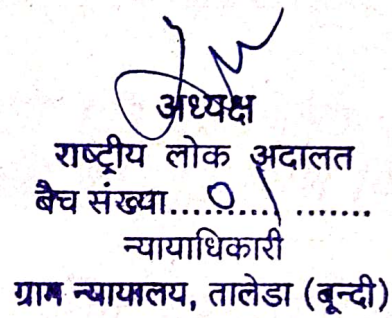 अध्यक्ष
राष्ट्रीय लोक अदालत
बैच संख्या....01.......
न्यायाधिकारी
ग्राम न्यायालय, तालेडा (बून्दी)